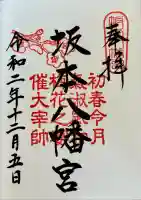 奉拝
坂本八幡宮
初春令月
梅花
催大宰帥
令和二年十二月五日